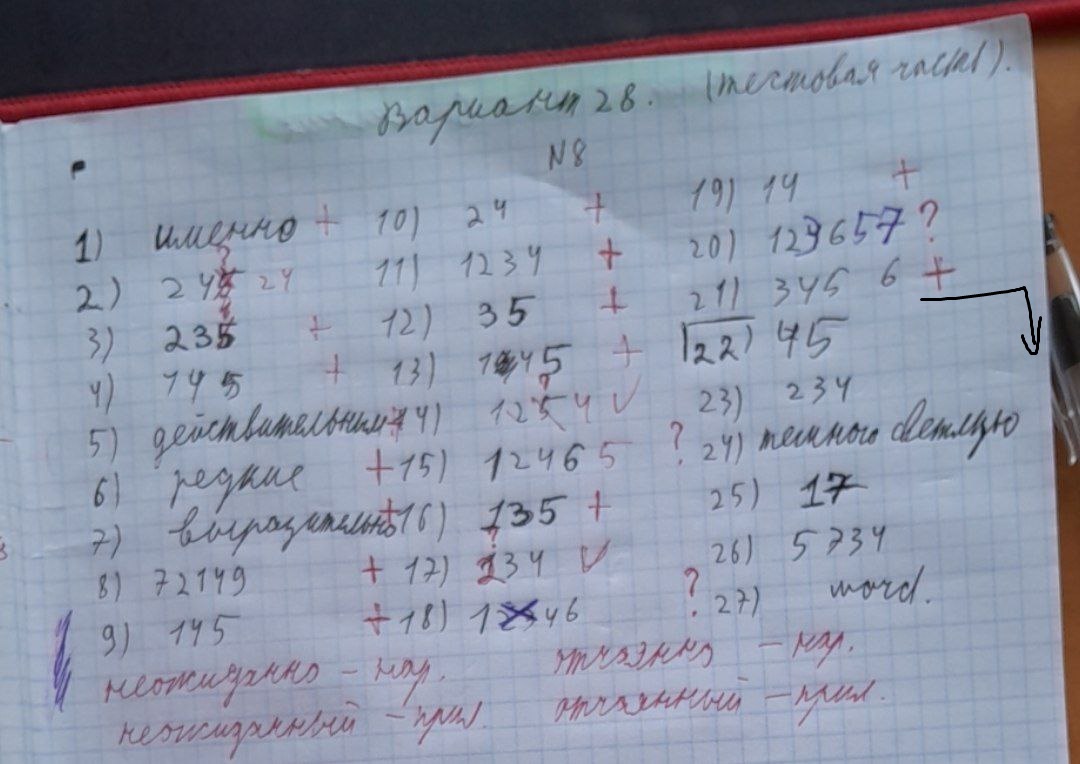 Вариант 28. (тестовая часть).
№8
1) именно +
2) 245 24
3) 235 +
4) 145 +
5) действительным +
6) редкие +
7) выразительно +
8) 72149 +
9) 145 +
10) 24 +
11) 1234 +
12) 35 +
13) 145 +
14) 125 4 V
15) 12465 ?
16) 135 +
17) 234 V
18) 1246 ?
19) 14 +
20) 129657 ?
21) 345 6 +
22) 45
23) 234
24) темного светлую
25) 17
26) 5734
27) word.
неожиданно - нар. отчаянно - нар.
неожиданный - прил. отчаянный - прил.